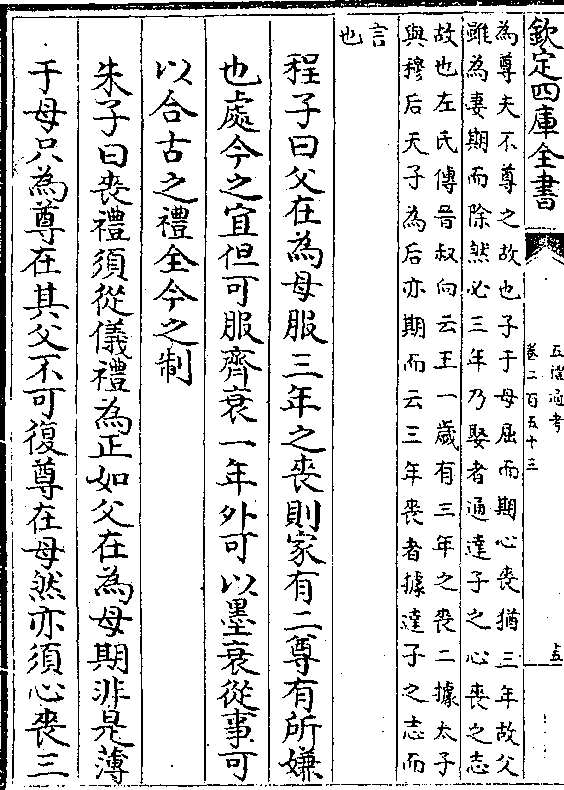 欽定四庫全書
五禮通考
卷二百五十三
五
為尊夫不尊之故也子于母屈而期心喪猶三年故父
雖為妻期而除然必三年乃娶者通達子之心喪之志
故也左氏傳晉叔向云王一歲有三年之喪二據太子
與穆后天子為后亦期而云三年喪者據達子之志而
言
也
程子曰父在為母服三年之喪則家有二尊有所嫌
也處今之宜但可服齊衰一年外可以墨衰從事可
以合古之禮全今之制
朱子曰喪禮須從儀禮為正如父在為母期非是薄
于母只為尊在其父不可復尊在母然亦須心喪三